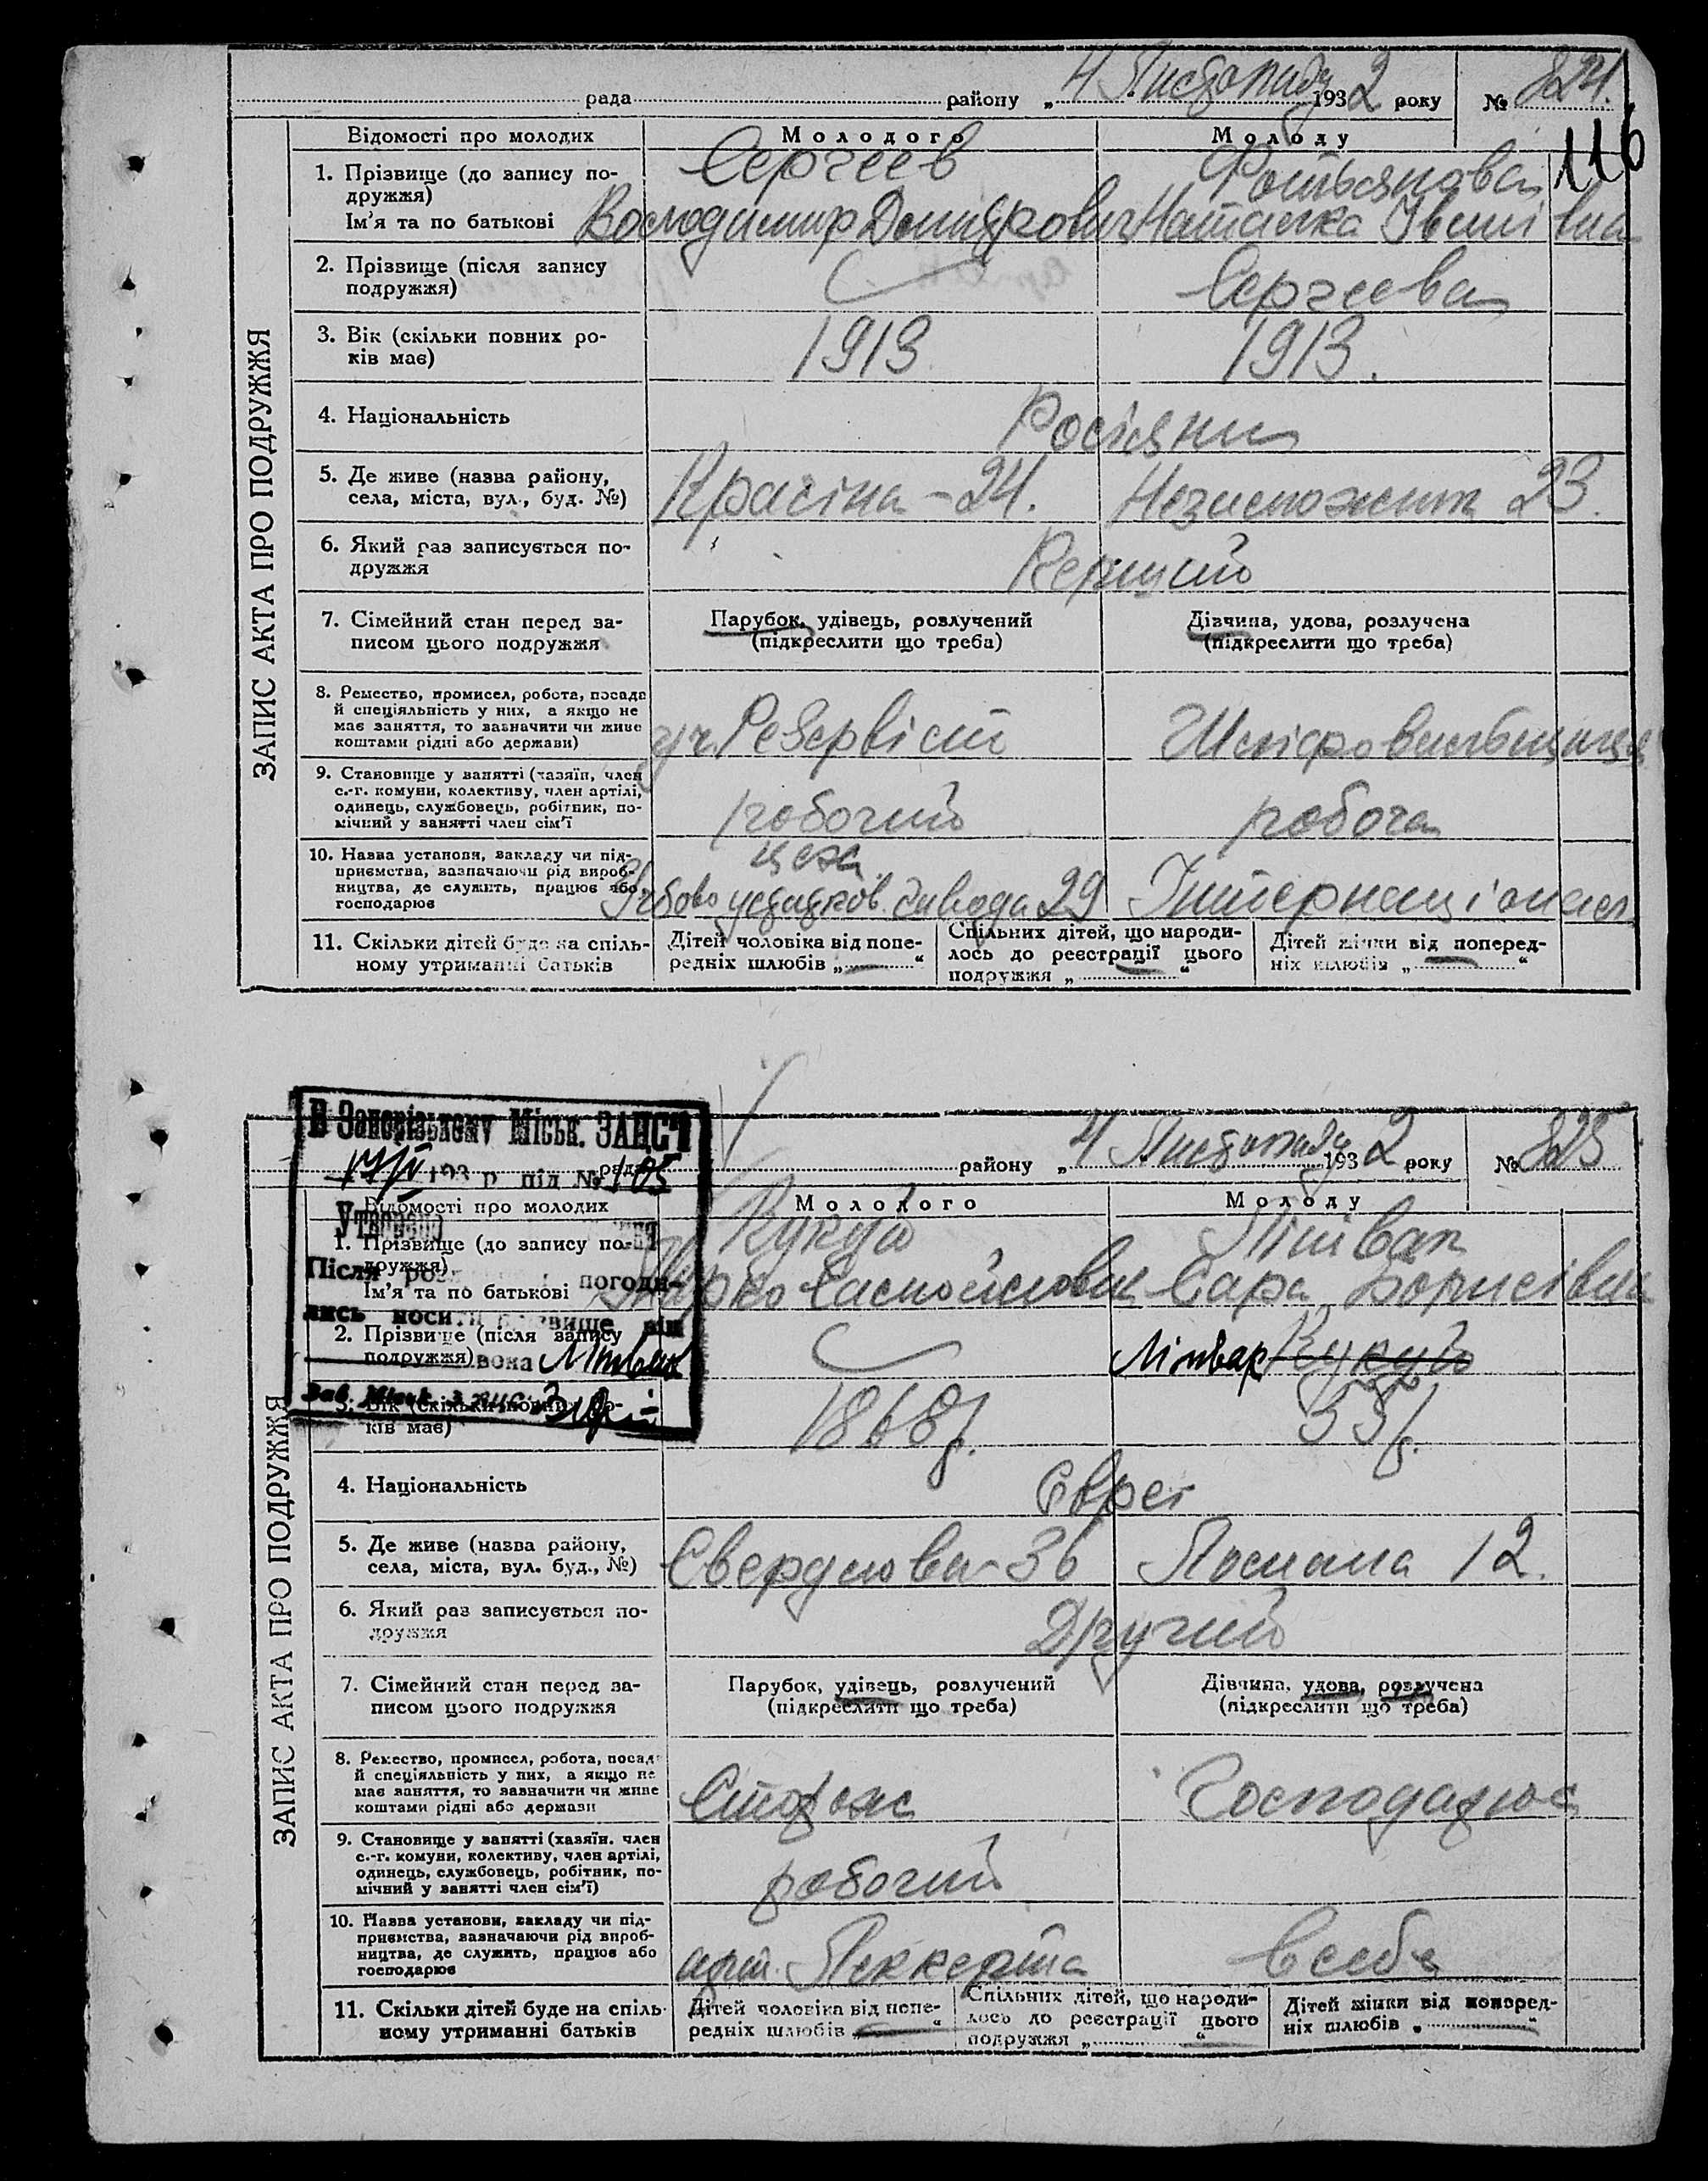 рада району „4 Листопада 1932 року № 824.
116
ЗАПИС АКТА ПРО ПОДРУЖЖЯ
Відомості про молодих Молодого Молоду
1. Прізвище (до запису по-
дружжя)
Сергеев
Ім'я та по батькові Володимир Дмитрович Наталка Іванівна
2. Прізвище (після запису
подружжя)
Сергеева
3. Вік (скільки повних ро-
ків має)
1913 1913.
4. Національність
Росіяни
5. Де живе (назва району,
села, міста, вул., буд. №)
Красіна - 24. Незаможник 23.
6. Який раз записується по-
дружжя
Перший
7. Сімейний стан перед за-
писом цього подружжя
Парубок, удівець, розлучений
(підкреслити що треба)
Дівчина, удова, розлучена
(підкреслити що треба)
8. Ремество, промисел, робота, посада
й спеціяльність у них, а якщо не
має заняття, то зазначити чи живе
коштами рідні або держави)
Шліфовальщиця
9. Становище у занятті (хазяїн, член
с.-г. комуни, колективу, член артілі,
одинець, службовець, робітник, по-
мічний у занятті член сім'ї
робочий робоча
10. Назва установи, закладу чи під-
приємства, зазначаючи рід вироб-
ництва, де служить, працює або
господарює
цеха
завода 29 Інтернаціонал
11. Скільки дітей буде на спіль-
ному утриманні батьків
Дітей чоловіка від попе-
редніх шлюбів „ “
Спільних дітей, що народи-
лось до реєстрації цього
подружжя „ “
Дітей жінки від поперед-
ніх шлюбів „ “
В Запорізькому Міськ. ЗАГС'і
193 р під № 105
Після погоди-
лись носити прізвище він
вона Літвак
рада району „4 Листопада 1932 року № 825
ЗАПИС АКТА ПРО ПОДРУЖЖЯ
Відомості про молодих Молодого Молоду
1. Прізвище (до запису по-
дружжя)
Кукуй Літвак
Ім'я та по батькові Марко Сара Борисівна
2. Прізвище (після запису
подружжя)
Літвак Кукуй
3. Вік (скільки повних ро-
ків має)
1868 р. 55 р.
4. Національність
Євреї
5. Де живе (назва району,
села, міста, вул. буд., №)
Свердлова - 36 12.
6. Який раз записується по-
дружжя
Другий
7. Сімейний стан перед за-
писом цього подружжя
Парубок, удівець, розлучений
(підкреслити що треба)
Дівчина, удова, розлучена
(підкреслити що треба)
8. Ремество, промисел, робота, посада
й спеціяльність у них, а якщо не
має заняття, то зазначити чи живе
коштами рідні або держави
Сторож Господарює
9. Становище у занятті (хазяїн. член
с.-г. комуни, колективу, член артілі,
одинець, службовець, робітник, по-
мічний у занятті член сім'ї)
робочий
10. Назва установи, закладу чи під-
приємства, зазначаючи рід вироб-
ництва, де служить, працює або
господарює
арт. Леккерта в себе
11. Скільки дітей буде на спіль-
ному утриманні батьків
Дітей чоловіка від попе-
редніх шлюбів „ “
Спільних дітей, що народи-
лось до реєстрації цього
подружжя „ “
Дітей жінки від поперед-
ніх шлюбів „ “